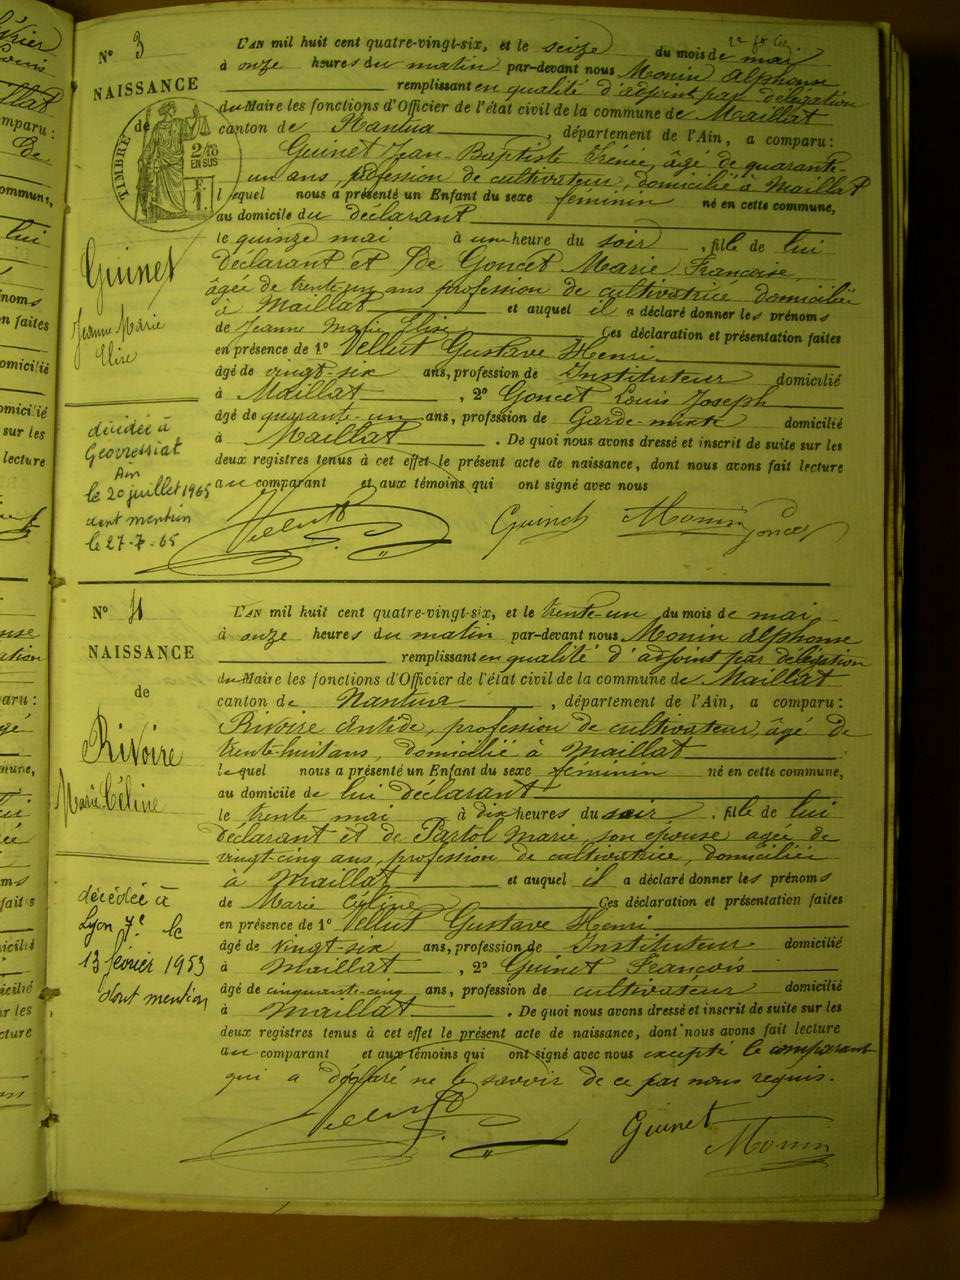 N° 3
NAISSANCE
de
TIMBRE
2/10
EN SUS
Guinet
Jeanne Marie
Elise
décédée à
Géovressiat
Ain
le 20 juillet 1965
dont mention
le 27-7-65
L'AN mil huit cent quatre-vingt-six, et le seize du mois de mai
à onze heures du matin par-devant nous Monin Alphonse
remplissant en qualité d'adjoint par délégation
du Maire les fonctions d'Officier de l'état civil de la commune de Maillat
canton de Nantua, département de l'Ain, a comparu:
Guinet Jean-Baptiste Irénée, âgé de quarante-
un ans, profession de cultivateur, domicilié à Maillat
lequel nous a présenté un Enfant du sexe féminin né en cette commune,
au domicile du déclarant
le quinze mai à une heure du soir, fille de lui
déclarant et de Goncet Marie Françoise
agée de trente-un ans profession de cultivatrice domiciliée
à Maillat et auquel il a déclaré donner les prénoms
de Jeanne Marie Elise Ces déclaration et présentation faites
en présence de 1° Vellut Gustave Henri
âgé de vingt-six ans, profession de Instituteur domicilié
à Maillat, 2° Goncet Louis Joseph
âgé de quarante-un ans, profession de Garde-mixte domicilié
à Maillat. De quoi nous avons dressé et inscrit de suite sur les
deux registres tenus à cet effet le présent acte de naissance, dont nous avons fait lecture
au comparant et aux témoins qui ont signé avec nous
Vellut Guinet Monin Goncet
N° 4
NAISSANCE
de
Rivoire
Marie Céline
décédée à
Lyon 7e le
13 février 1953
dont mention
L'AN mil huit cent quatre-vingt-six, et le trente-un du mois de mai
à onze heures du matin par-devant nous Monin Alphonse
remplissant en qualité d'adjoint par délégation
du Maire les fonctions d'Officier de l'état civil de la commune de Maillat
canton de Nantua, département de l'Ain, a comparu:
Rivoire Antide, profession de cultivateur, âgé de
trente-huit ans, domicilié à Maillat
lequel nous a présenté un Enfant du sexe féminin né en cette commune,
au domicile de lui déclarant
le trente mai à dix heures du soir, fille de lui
déclarant et de Partol Marie, son épouse agée de
vingt-cinq ans, profession de cultivatrice, domiciliée
à Maillat et auquel il a déclaré donner les prénoms
de Marie Céline Ces déclaration et présentation faites
en présence de 1° Vellut Gustave Henri
âgé de vingt-six ans, profession de Instituteur domicilié
à Maillat, 2° Guinet François
âgé de cinquante-cinq ans, profession de cultivateur domicilié
à Maillat. De quoi nous avons dressé et inscrit de suite sur les
deux registres tenus à cet effet le présent acte de naissance, dont nous avons fait lecture
au comparant et aux témoins qui ont signé avec nous excepté le comparant
qui a déclaré ne le savoir de ce par nous requis.
Vellut Guinet
Monin